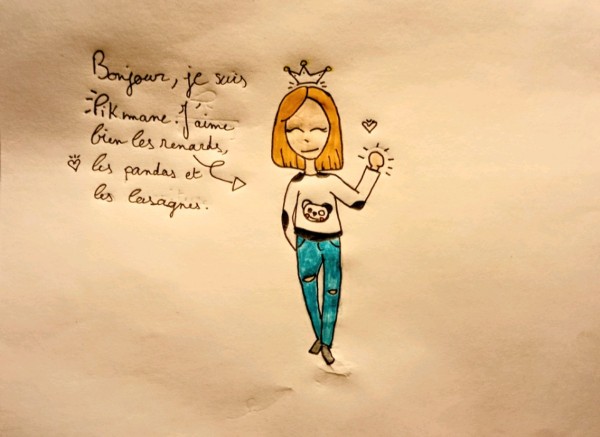 Bonjour, je suis
Pikmane. J'aime
bien les renards,
les pandas et
les lasagnes.